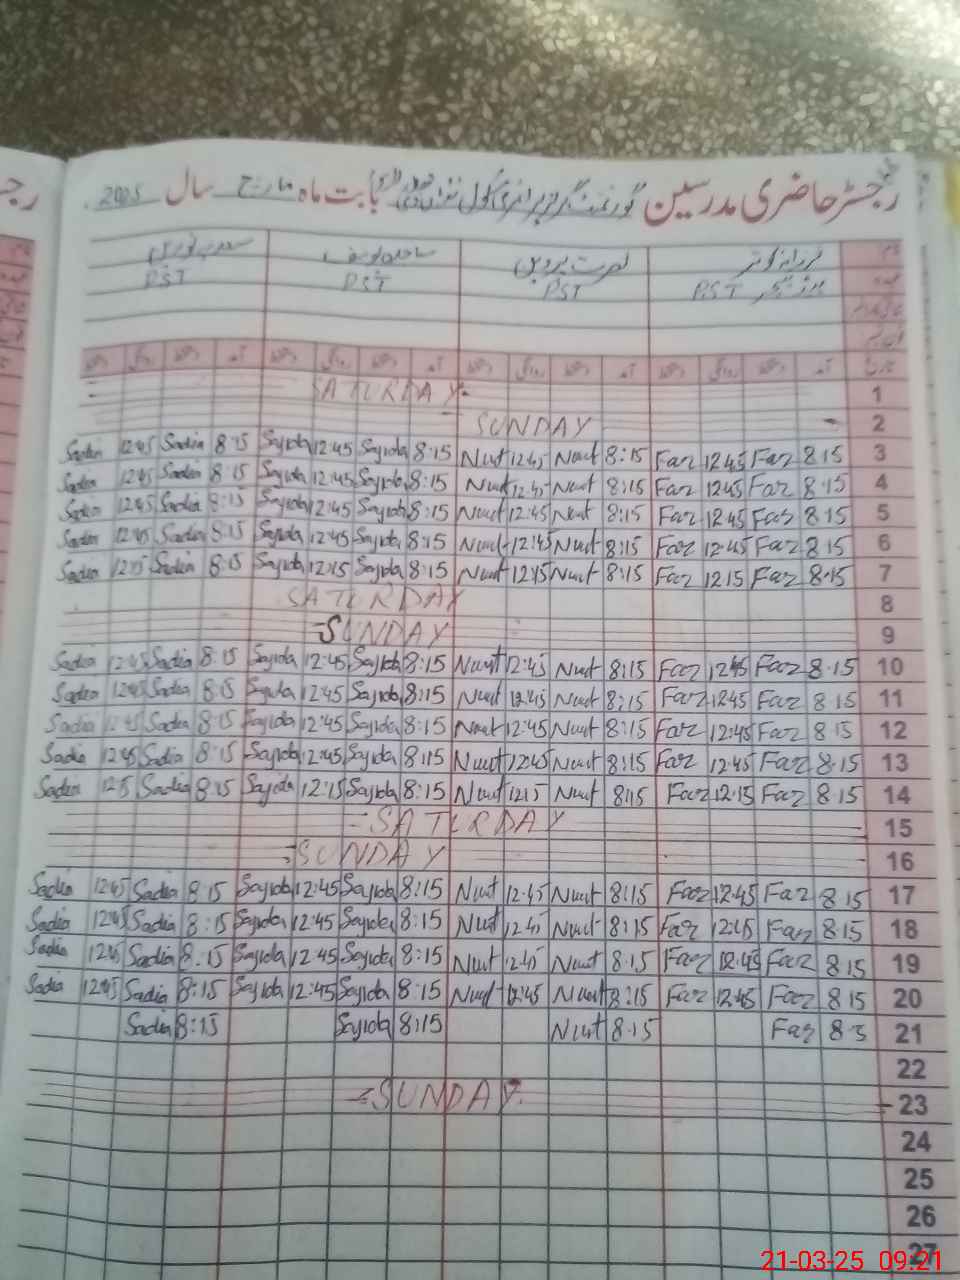 رجسٹر حاضری مدرسین گورنمنٹ گرلز پرائمری سکول بابت ماہ مارچ سال 2025
فرزانہ کوثر نصرت پروین ساجدہ یوسف
PST PST PST PST
1 SATURDAY
2 SUNDAY
Sadia 12:45 Sadia 8:15 Sajida 12:45 Sajida 8:15 Nust 12:45 Nust 8:15 Faz 12:45 Faz 8:15 3
Sadia 12:45 Sadia 8:15 Sajida 12:45 Sajida 8:15 Nust 12:45 Nust 8:15 Faz 12:45 Faz 8:15 4
Sadia 12:45 Sadia 8:15 Sajida 12:45 Sajida 8:15 Nust 12:45 Nust 8:15 Faz 12:45 Faz 8:15 5
Sadia 12:45 Sadia 8:15 Sajida 12:45 Sajida 8:15 Nust 12:45 Nust 8:15 Faz 12:45 Faz 8:15 6
Sadia 12:15 Sadia 8:15 Sajida 12:15 Sajida 8:15 Nust 12:15 Nust 8:15 Faz 12:15 Faz 8:15 7
SATURDAY 8
SUNDAY 9
Sadia 12:45 Sadia 8:15 Sajida 12:45 Sajida 8:15 Nust 12:45 Nust 8:15 Faz 12:45 Faz 8:15 10
Sadia 12:45 Sadia 8:15 Sajida 12:45 Sajida 8:15 Nust 12:45 Nust 8:15 Faz 12:45 Faz 8:15 11
Sadia 12:45 Sadia 8:15 Sajida 12:45 Sajida 8:15 Nust 12:45 Nust 8:15 Faz 12:45 Faz 8:15 12
Sadia 12:45 Sadia 8:15 Sajida 12:45 Sajida 8:15 Nust 12:45 Nust 8:15 Faz 12:45 Faz 8:15 13
Sadia 12:15 Sadia 8:15 Sajida 12:15 Sajida 8:15 Nust 12:15 Nust 8:15 Faz 12:15 Faz 8:15 14
SATURDAY 15
SUNDAY 16
Sadia 12:45 Sadia 8:15 Sajida 12:45 Sajida 8:15 Nust 12:45 Nust 8:15 Faz 12:45 Faz 8:15 17
Sadia 12:45 Sadia 8:15 Sajida 12:45 Sajida 8:15 Nust 12:45 Nust 8:15 Faz 12:45 Faz 8:15 18
Sadia 12:45 Sadia 8:15 Sajida 12:45 Sajida 8:15 Nust 12:45 Nust 8:15 Faz 12:45 Faz 8:15 19
Sadia 12:45 Sadia 8:15 Sajida 12:45 Sajida 8:15 Nust 12:45 Nust 8:15 Faz 12:45 Faz 8:15 20
Sadia 8:15 Sajida 8:15 Nust 8:15 Faz 21
22
SUNDAY 23
24
25
26
27
21-03-25 09:21